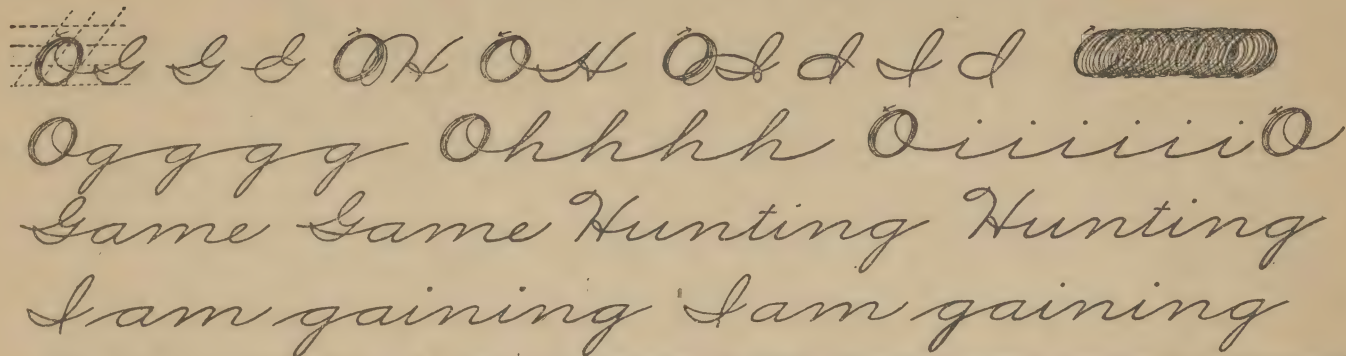 O G G G O H O H O I I I I
O g g g g O h h h h O i i i i i i O
Game Game Hunting Hunting
I am gaining I am gaining